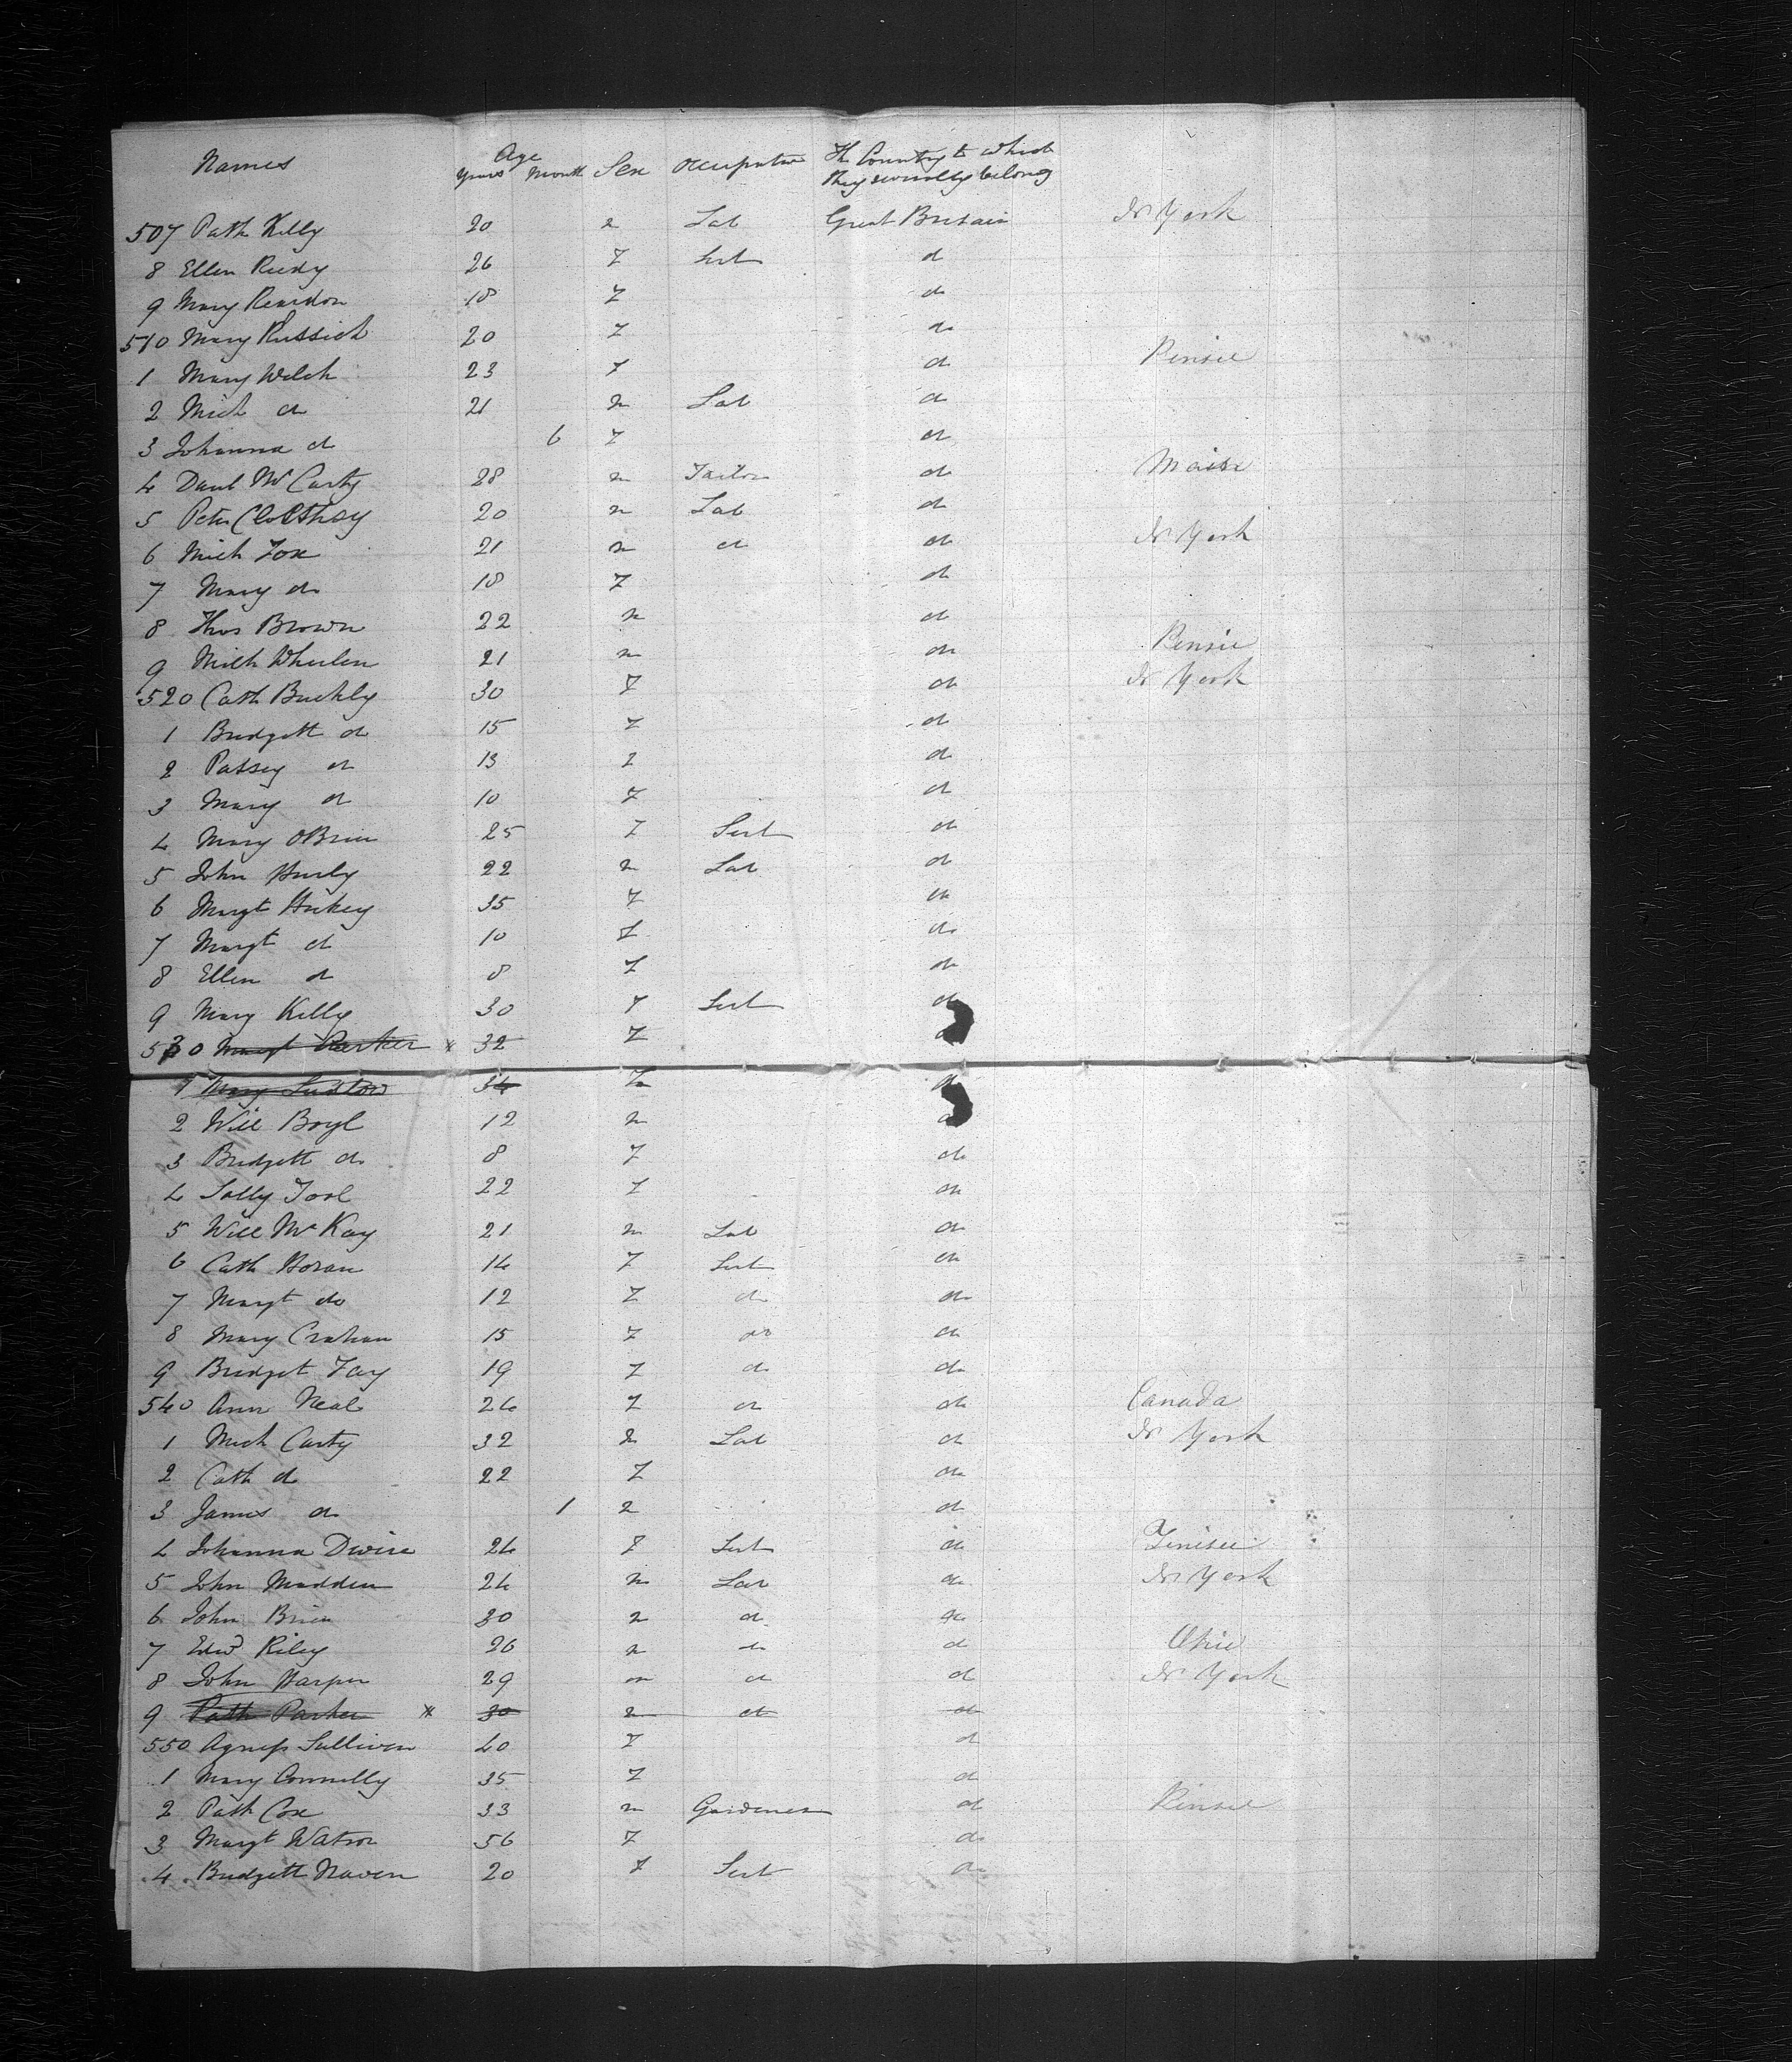 Names Age Years Month Sex Occupation The Country to which they severally belong
507 Path Kelly 20 m Lab Great Britain N York
8 Ellen Reedy 26 F Sert d
9 Mary Reardon 18 F d
510 Mary Russick 20 F d
1 Mary Welch 23 F d Pensie
2 Mich d 21 m Lab d
3 Johanna d 6 F d
4 Danl McCarty 28 m Tailor d Maise
5 Peter 20 m Lab d
6 Mich Fox 21 m d d N York
7 Mary do 18 F d
8 Thos Brown 22 m d
9 Mich Whelen 21 m d Pensie
520 Cath Buckly 30 F d N York
1 Bridgett d 15 F d
2 Patsey d 13 m d
3 Mary d 10 F d
4 Mary OBrien 25 F Sert d
5 John Hurly 22 m Lab d
6 Margt Hickey 35 F d
7 Margt d 10 F d
8 Ellen d 8 F d
9 Mary Kelly 30 F Sert d
530 Margt Parker x 32 F
1 Mary Sudlow 34 F d
2 Will Boyl 12 m d
3 Bridgett d 8 F do
4 Sally Tool 22 F d
5 Will McKay 21 m Lab d
6 Cath Horan 14 F Sert d
7 Margt do 12 F d d
8 Mary Crahan 15 F do d
9 Bridget Fay 19 F d d
540 Ann Neal 24 F d d Canada
1 Mich Carty 32 m Lab d N York
2 Cath d 22 F d
3 James d 1 m d
4 Johanna Dwire 24 F Sert d Tinisie
5 John Madden 24 m Lab d N York
6 John Brien 30 m d d
7 Edwd Riley 26 m d d Ohio
8 John Harper 29 m d d N York
9 Path Parker x 30 m d d
550 Agness Sullivan 40 F d
1 Mary Connelly 35 F d
2 Path Cox 33 m Gardener d Pinsie
3 Margt Watson 56 F d
4 Bridgett Naven 20 F Sert d